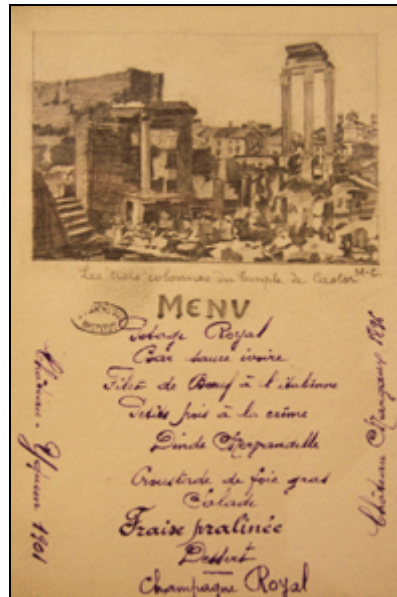 Les trois colonnes du Temple de Castor
M-C.
MENU
Potage Royal
Bar sauce ivoire
Filet de Bœuf à l'italienne
Petits pois à la crème
Dinde
Croustade de foie gras
Salade
Fraise pralinée
Dessert
Champagne Royal
Château-Yquem 1901
Château Margaux